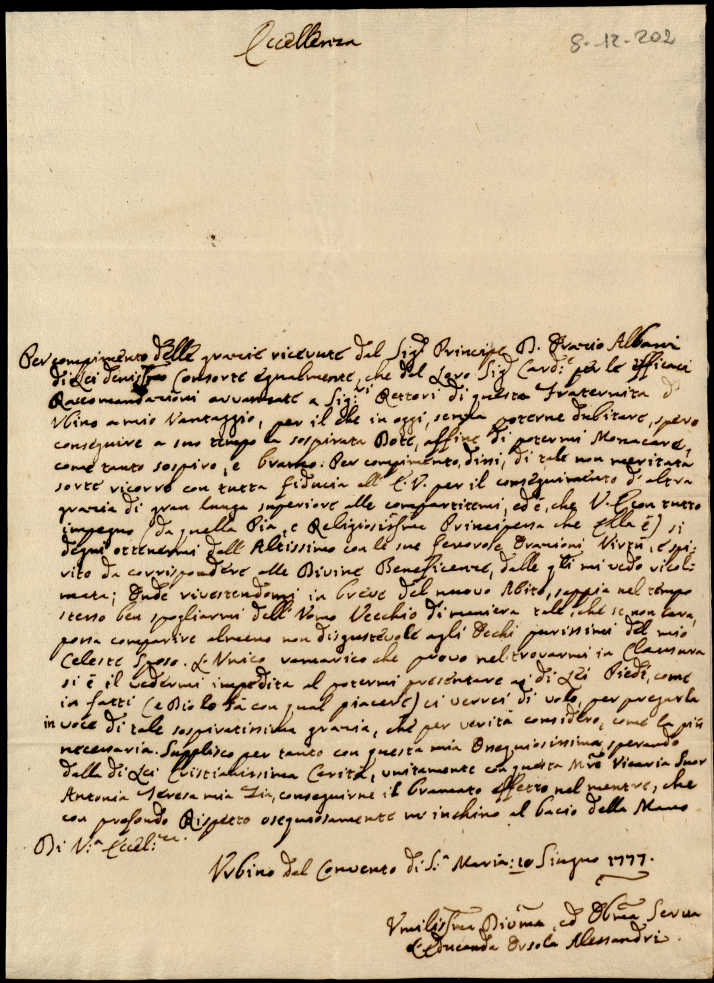 Eccellenza
8-12-202
Per compimento delle grazie ricevute dal Sig.r Principe D. Orazio Albani
di Lei degnissimo Consorte egualmente, che dal Loro Sig.r Card.e per le efficaci
Raccomandazioni avvanzate a Sig:ri Rettori di questa Fraternita d'
Urbino a mio Vantaggio, per il che in oggi, senza poterne dubitare, spero
conseguire a suo tempo la sospirata Dote, affine di potermi Monacare,
come tanto sospiro, e bramo: Per compimento, dissi, di tale non meritata
sorte ricorro con tutta fiducia all'E.V. per il conseguimento d'altra
grazia di gran lunga superiore alle compartitemi, ed è, che V.E. con tutto
impegno (da quella Pia, e Religiosissima Principessa che Ella è) si
degni ottenermi dall'Altissimo con le sue fervorose Orazioni Virtù, e spi-
rito da corrispondere alle Divine Beneficenze, dalle q.li mi vedo ricol-
mata; Onde rivestendomi in breve del nuovo Abito, sappia nel tempo
stesso ben spogliarmi dell'Uomo Vecchio di maniera tale, che se non cara,
possa comparire almeno non disgustevole agli Occhi purissimi del mio
Celeste Sposo. L'Unico rammarico che provo nel trovarmi in Clausura
si è il vedermi impedita al potermi presentare a di Lei Piedi, come
in fatti (e Dio lo sà con qual piacere) ci verrei di volo, per pregarla
in voce di tale sospiratissima grazia, che per verità considero, come la più
necessaria. Supplisco per tanto con questa mia Ossequiosissima, sperando
dalla di Lei Cristianissima Carità, unitamente con questa M.re Vicaria Suor
Antonia Teresa mia Zia, conseguirne il bramato effetto nel mentre, che
con profondo Rispetto ossequiosamente m'inchino al bacio della Mano
Di V.a Eccell.za
Urbino dal Convento di S.a Maria: 10 Giugno 1777.
Umilissma Divma, ed Obma Serva
L'Educanda Orsola Alessandri.